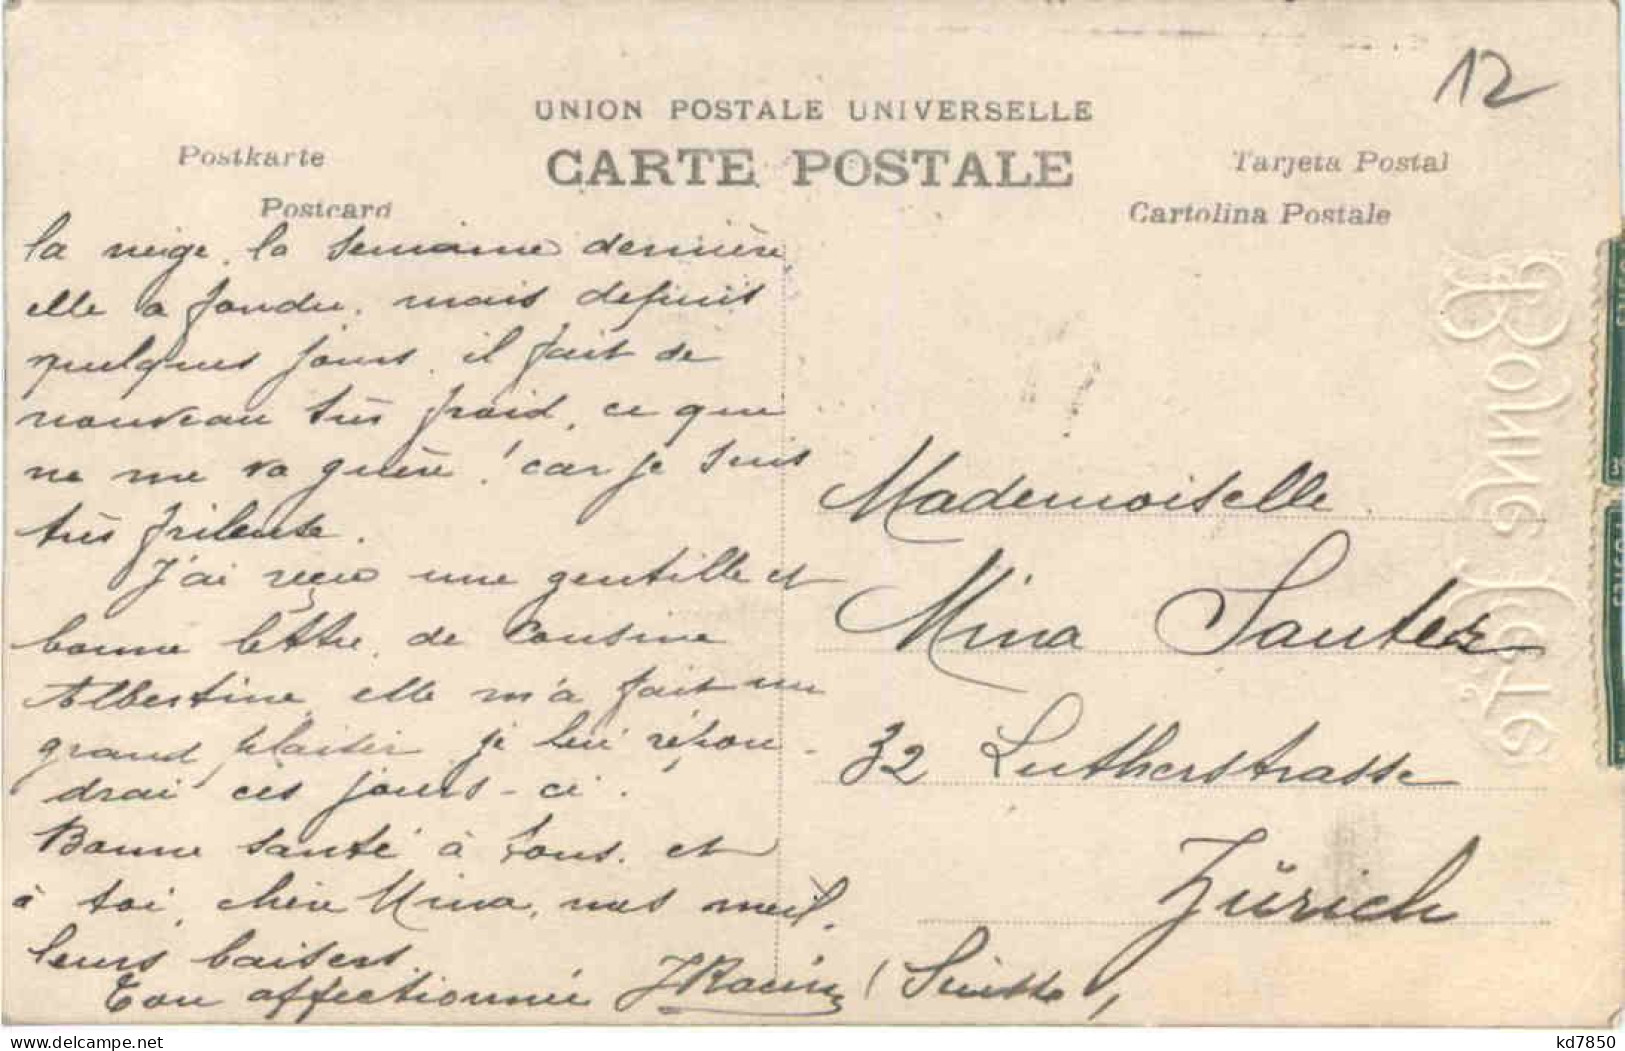 12
UNION POSTALE UNIVERSELLE
CARTE POSTALE
Postkarte
Postcard
Tarjeta Postal
Cartolina Postale
la neige, la semaine dernière
elle a fondu, mais depuis
quelques jours, il fait de
nouveau très froid, ce que
ne me va guère ! car je suis
très frileuse.
J'ai reçu une gentille et
bonne lettre, de Cousine
Albertine, elle m'a fait un
grand plaisir, je lui répon-
drai ces jours-ci.
Bonne santé à tous, et
à toi, chère Mina, mes meil-
leurs baisers.
Ton affectionnée
Mademoiselle
Mina Sauter
32 Lutherstrasse
Zürich
(Suisse)
Bonne Fête
kd7850